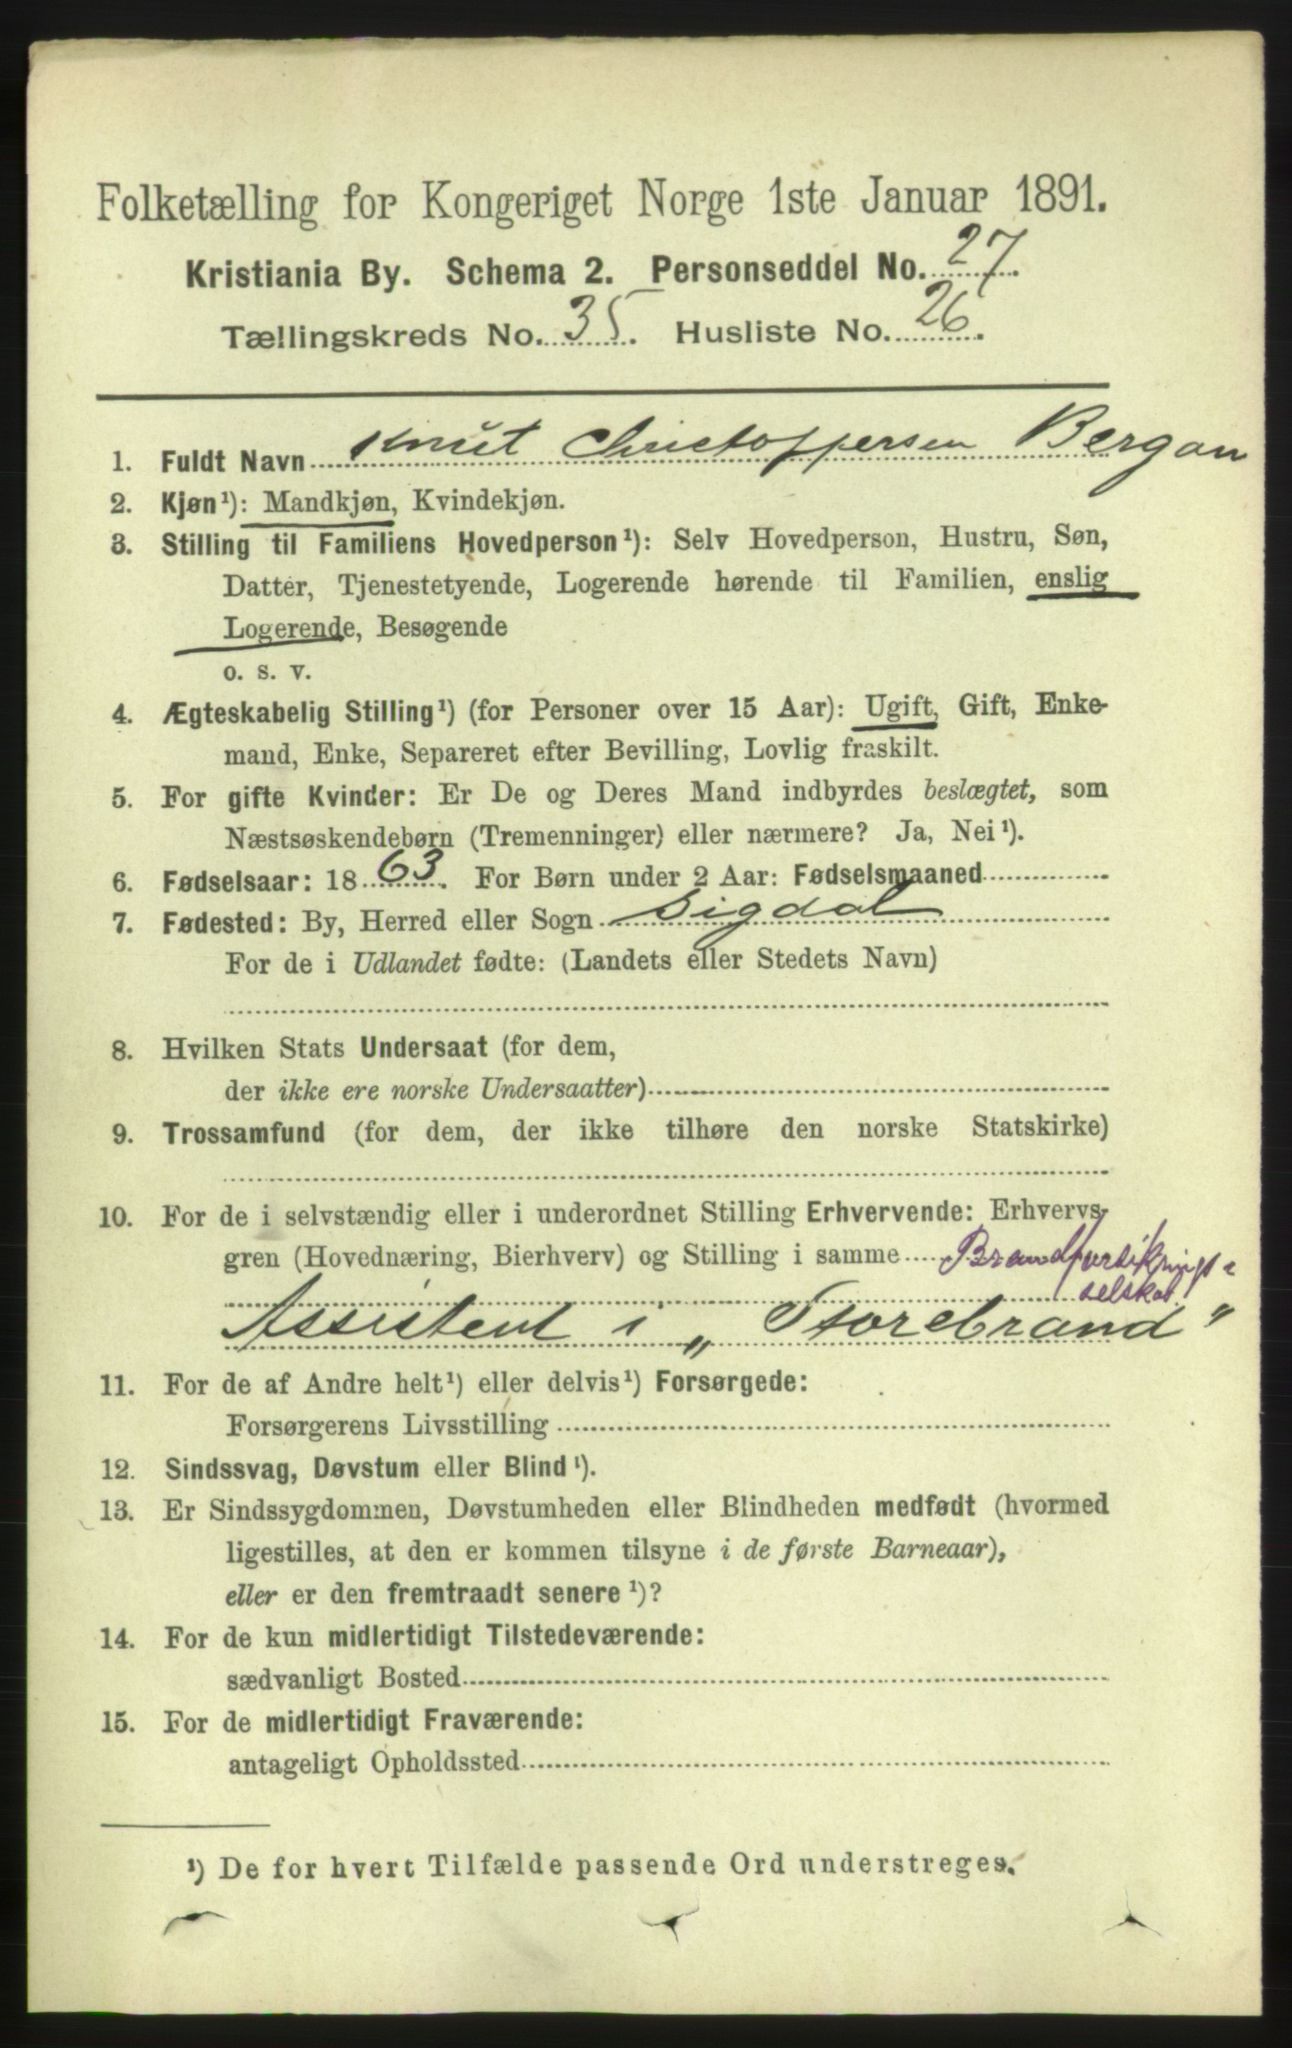 Folketælling for Kongeriget Norge 1ste Januar 1891.
Kristiania By. Schema 2. Personseddel No. 27.
Tællingskreds No. 35. Husliste No. 26.
1. Fuldt Navn Knut Christoppersen Bergan
2. Kjøn¹): Mandkjøn, Kvindekjøn.
3. Stilling til Familiens Hovedperson¹): Selv Hovedperson, Hustru, Søn,
Datter, Tjenestetyende, Logerende hørende til Familien, enslig
Logerende, Besøgende
o. s. v.
4. Ægteskabelig Stilling¹) (for Personer over 15 Aar): Ugift, Gift, Enke-
mand, Enke, Separeret efter Bevilling, Lovlig fraskilt.
5. For gifte Kvinder: Er De og Deres Mand indbyrdes beslægtet, som
Næstsøskendebørn (Tremenninger) eller nærmere? Ja, Nei¹).
6. Fødselsaar: 1863. For Børn under 2 Aar: Fødselsmaaned
7. Fødested: By, Herred eller Sogn Sigdal
For de i Udlandet fødte: (Landets eller Stedets Navn)
8. Hvilken Stats Undersaat (for dem,
der ikke ere norske Undersaatter)
9. Trossamfund (for dem, der ikke tilhøre den norske Statskirke)
10. For de i selvstændig eller i underordnet Stilling Erhvervende: Erhvervs-
gren (Hovednæring, Bierhverv) og Stilling i samme Brandforsikrings-
selskab
Assistent i „Storebrand"
11. For de af Andre helt¹) eller delvis¹) Forsørgede:
Forsørgerens Livsstilling
12. Sindssvag, Døvstum eller Blind¹).
13. Er Sindssygdommen, Døvstumheden eller Blindheden medfødt (hvormed
ligestilles, at den er kommen tilsyne i de første Barneaar),
eller er den fremtraadt senere¹)?
14. For de kun midlertidigt Tilstedeværende:
sædvanligt Bosted
15. For de midlertidigt Fraværende:
antageligt Opholdssted
¹) De for hvert Tilfælde passende Ord understreges.